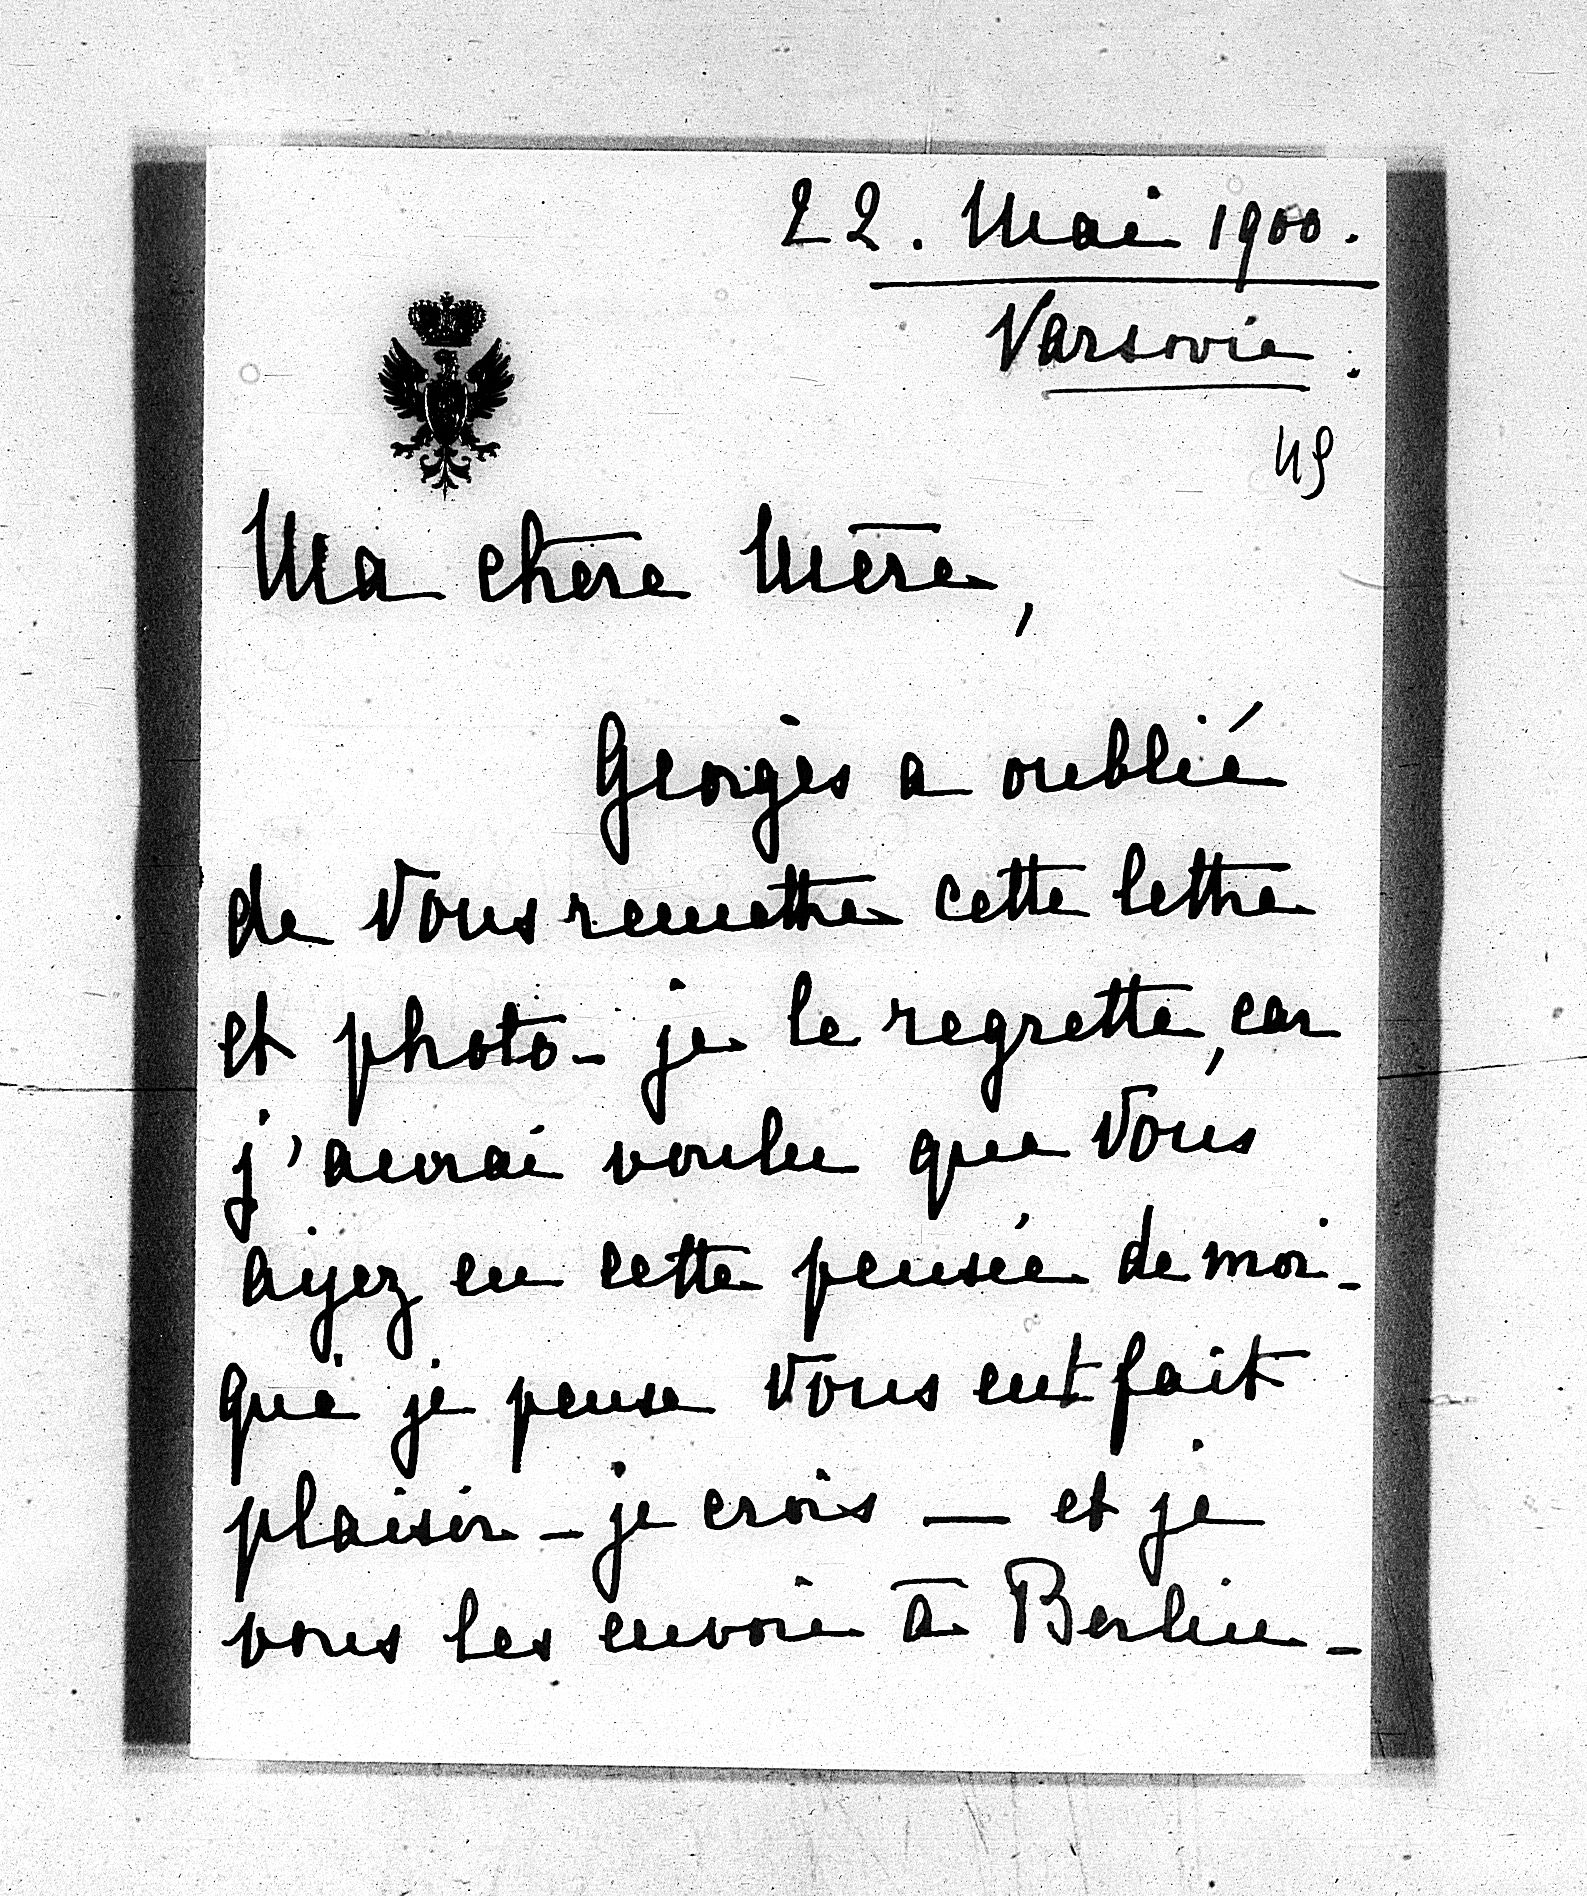 22. Mai 1900.
Varsovie.
49
Ma chère Mère,
Georges a oublié
de Vous remettre cette lettre
et photo - je le regrette, car
j'aurai voulu que Vous
ayez eu cette pensée de moi -
que je pense Vous eut fait
plaisir - je crois — et je
vous les envoie à Berlin -